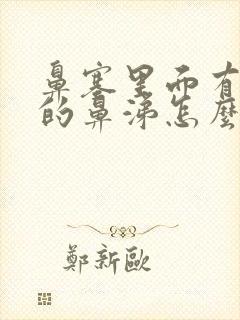 鼻塞里而有
的鼻涕怎麼
鄭新歐